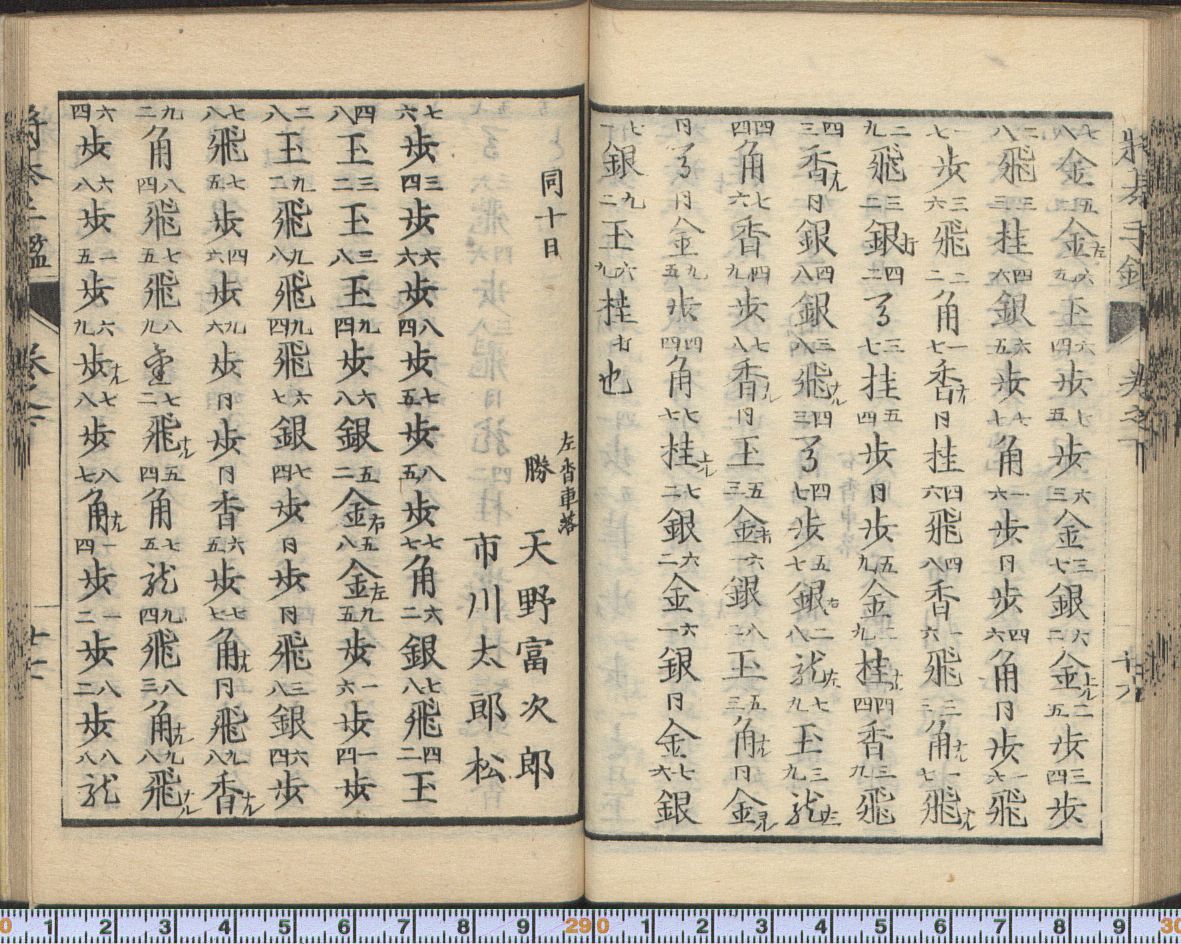 七八金 金左 六九玉 六四歩 七五歩 六三金 三七銀 六二金上ル 二五歩 三四歩
二八飛 三三桂 四六銀 六五歩 七七角 一六歩 同歩 四六角 同歩 一六飛
一七歩 三六飛 二二角 一七香ナル 同桂 四六飛 四八香 一六飛 三三角ナル 一七飛ナル
二九飛 三二銀打 四二と 三七桂 五四歩 同歩 五九金 二九桂ナル 四四香 三九飛
四三香ナル 同銀 四八銀 三八飛ナル 四三と 四七歩 五七銀右 二八龍左 七九玉 三九龍左
四四角 七六香 四九歩 七八香ナル 同玉 五三金打 六二銀 八二玉 五三角ナル 同金
同と 同金 九五歩 四四角 七七桂 七二銀 六二金 六一銀 同金 七六銀
七一銀 九二玉 六九桂打也
同十日
左香車落
勝 天野富次郎
市川太郎松
七六歩 三四歩 六六歩 八四歩 七五歩 八五歩 七七角 六二銀 七八飛 四二玉
四八玉 三二玉 三八玉 九四歩 六八銀 五二金右 五八金左 九五歩 一六歩 一四歩
二八玉 九二飛 九八飛 九四飛 六七銀 七四歩 同歩 同飛 三八銀 六四歩
七八飛 七五歩 四六歩 九六歩 同歩 同香 六五歩 七七角ナル 同飛 九八香ナル
九二角 八四飛 七五飛 八九 七二飛ナル 五四角 七五龍 九四飛 八三角ナル 九八飛ナル
六四歩 六八歩 一五歩 六九歩ナル 七八歩 八七角ナル 一四歩 一二歩 八二歩 八八龍